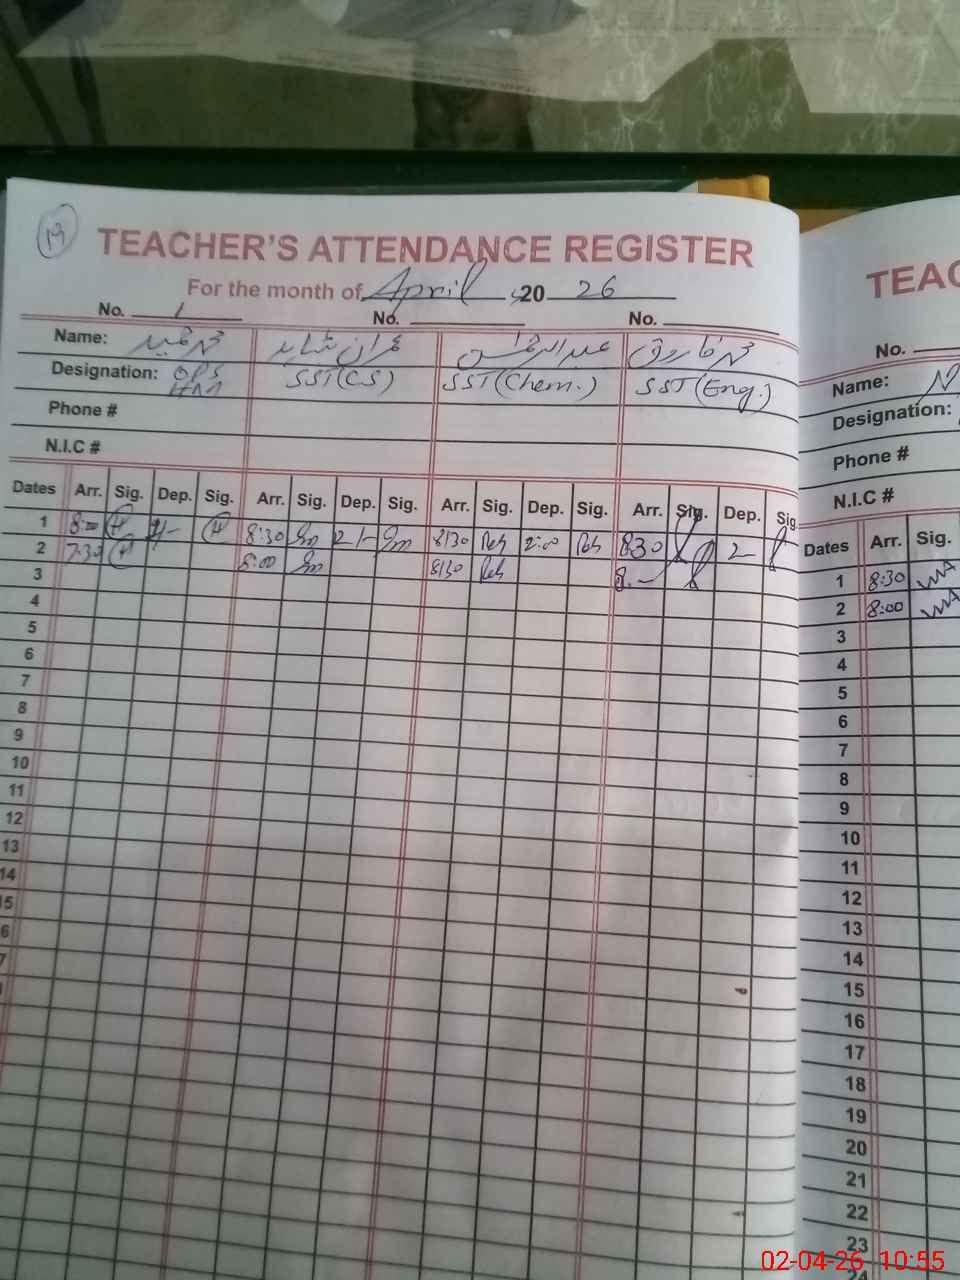 19
TEACHER'S ATTENDANCE REGISTER
For the month of April 20 26
No. 1 No. No.
Name: محمد عمران شاہد عبدالرحمن محمد فاروق
Designation: SST(CS) SST(Chem.) SST(Eng.)
Phone #
N.I.C #
Dates Arr. Sig. Dep. Sig. Arr. Sig. Dep. Sig. Arr. Sig. Dep. Sig. Arr. Sig. Dep. Sig.
1 8:00 8:30 2/- 8:30 2:00 830 2-
2 7:30 8:00 8:30 8.-
3
4
5
6
7
8
9
10
11
12
13
14
15
6
7
TEAC
No.
Name:
Designation:
Phone #
N.I.C #
Dates Arr. Sig.
1 8:30
2 8:00
3
4
5
6
7
8
9
10
11
12
13
14
15
16
17
18
19
20
21
22
23
24
02-04-26 10:55